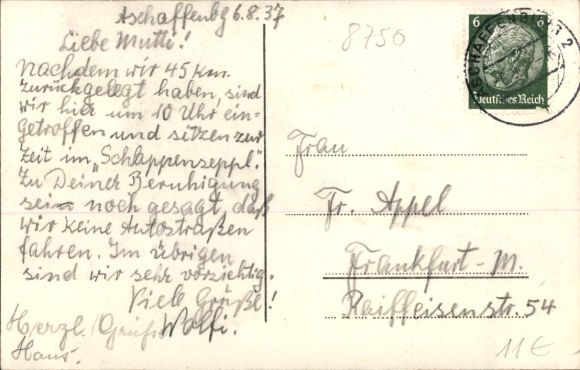 Aschaffenbg 6.8.37
Liebe Mutti!
Nachdem wir 45 km
zurückgelegt haben, sind
wir hier um 10 Uhr ein=
getroffen und sitzen zur
Zeit im „Schlappenseppl."
Zu Deiner Beruhigung
sei noch gesagt, daß
wir keine Autostraßen
fahren. Im übrigen
sind wir sehr vorsichtig.
Viele Grüße!
Wolfi.
Herzl. Grüße
Hans.
8750
6 6
Deutsches Reich
ASCHAFFENBURG 2
Frau
Fr. Appel
Frankfurt-M.
Raiffeisenstr. 54
11€